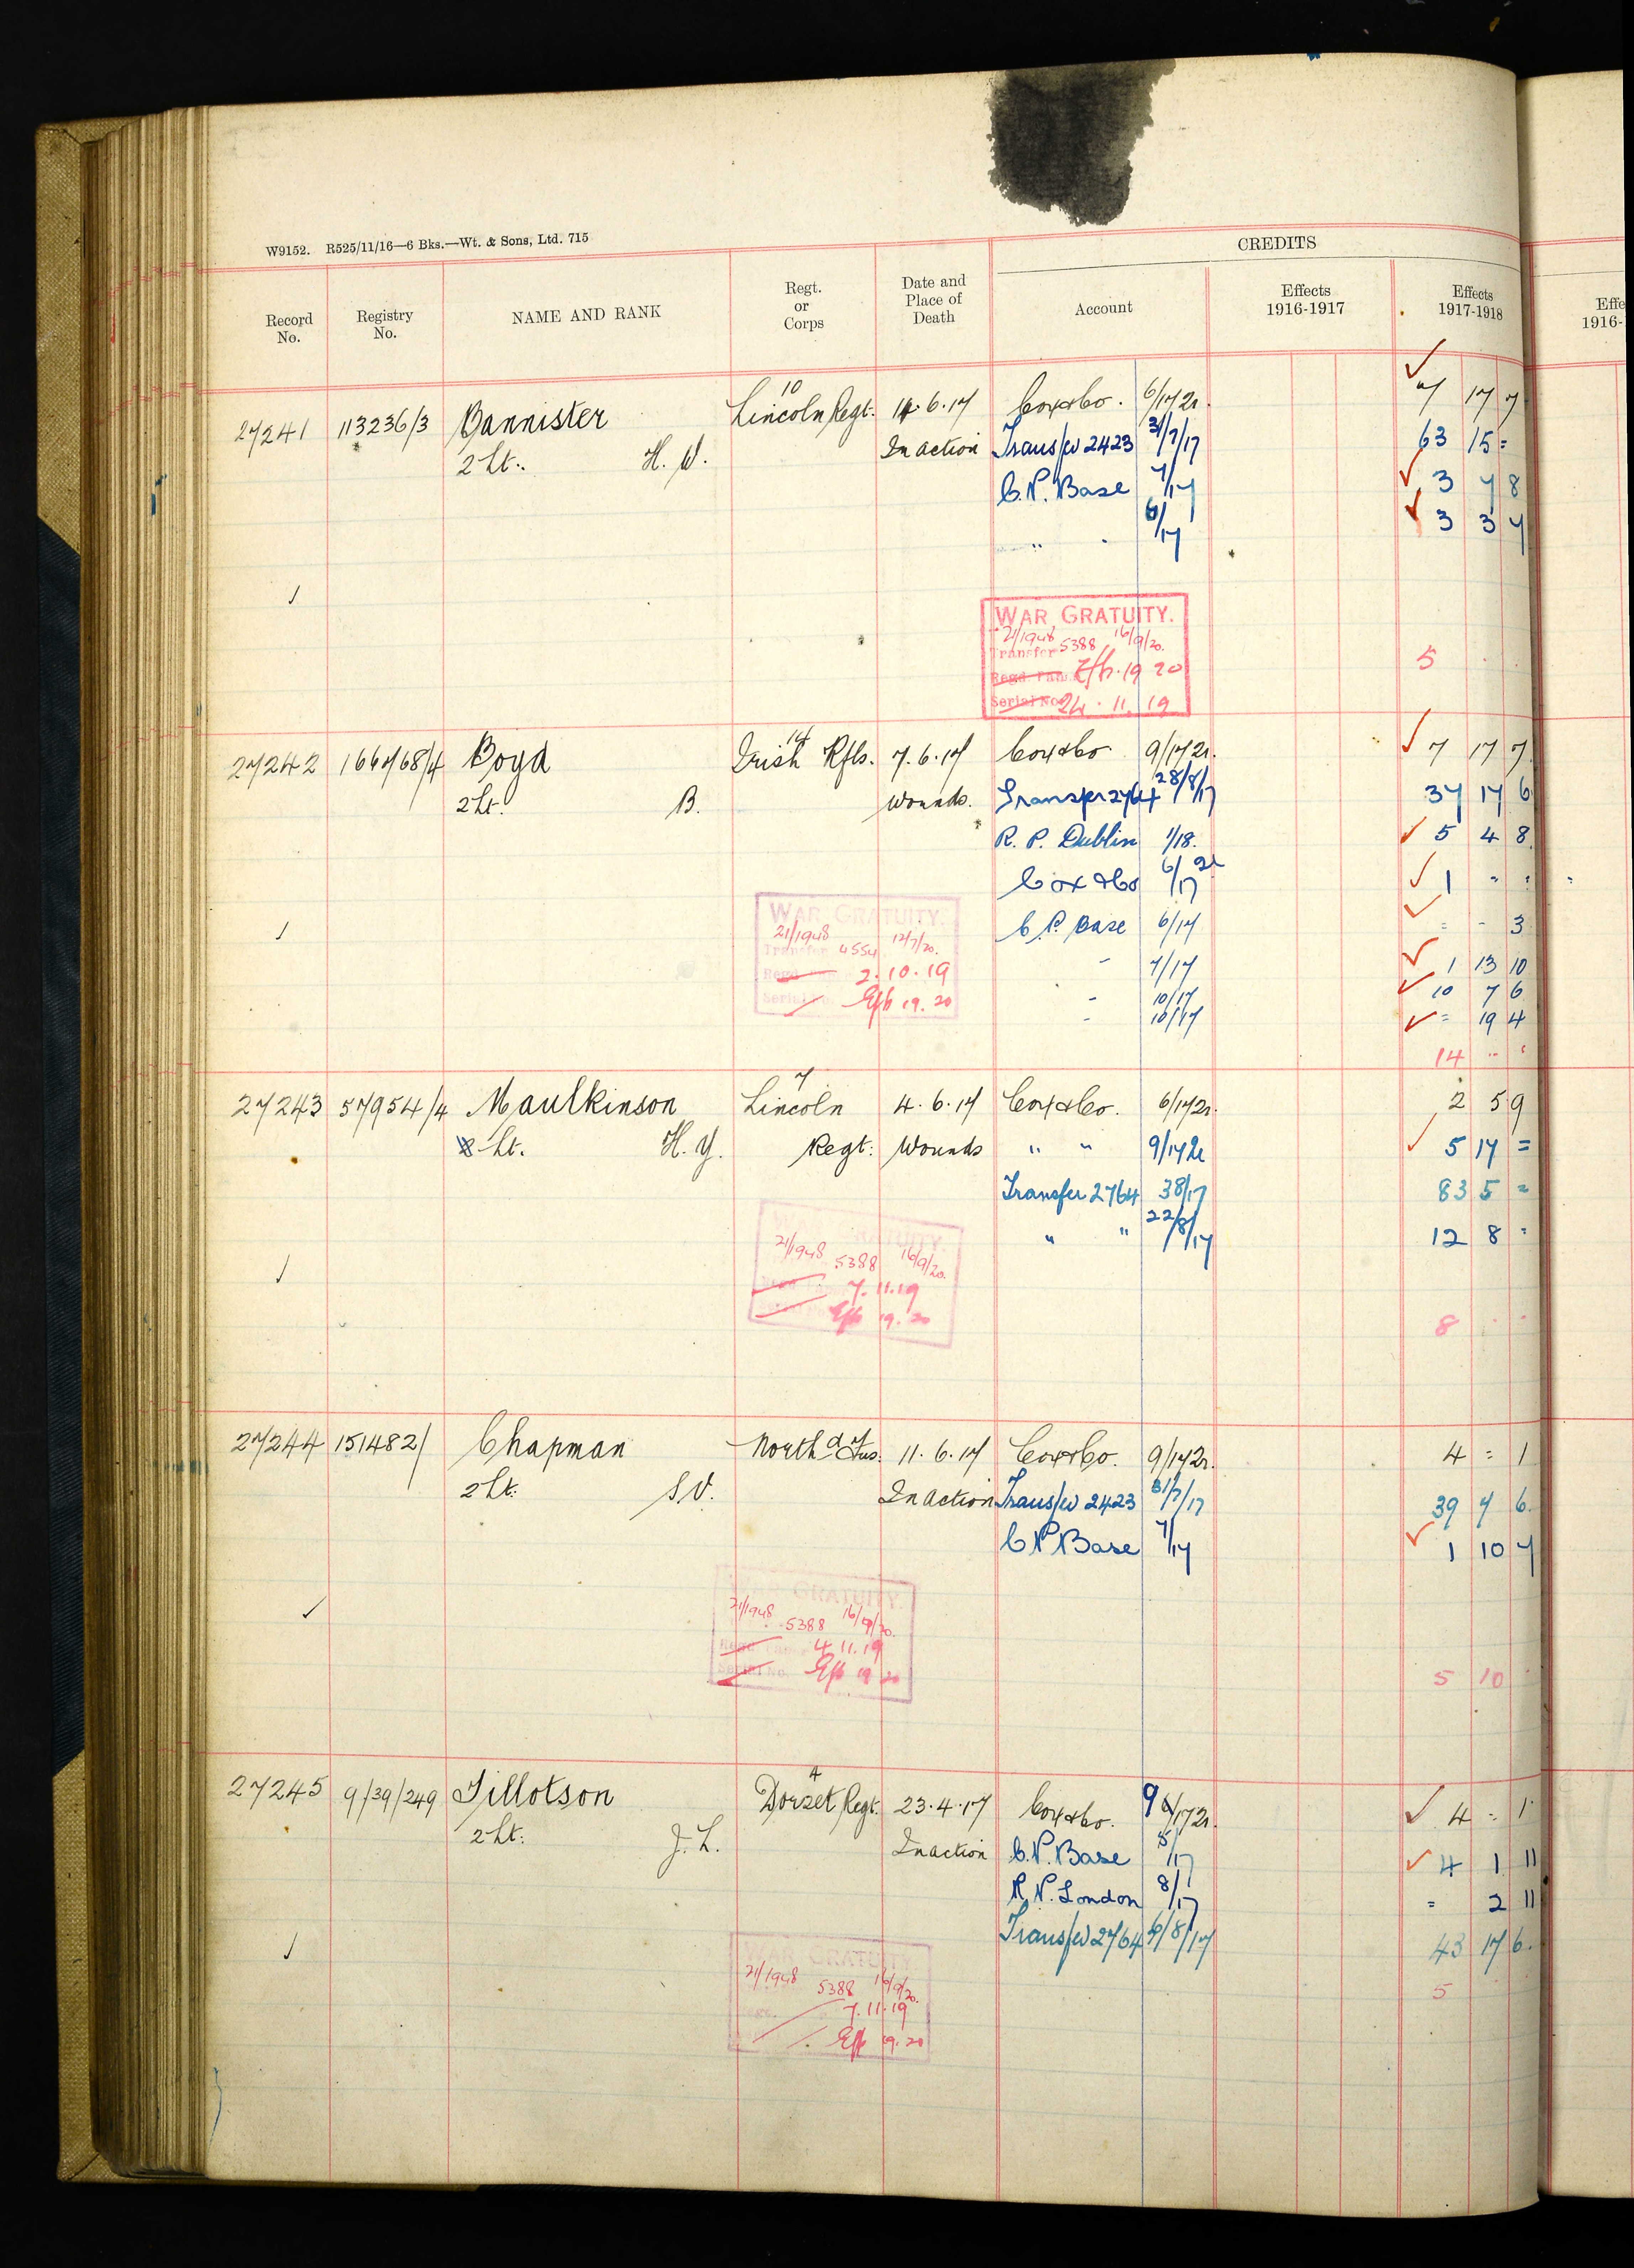 W9152. R525/11/16—6 Bks.—Wt. & Sons, Ltd. 715
CREDITS
Record No.
Registry No.
NAME AND RANK
Regt. or Corps
Date and Place of Death
Account
Effects 1916-1917
Effects 1917-1918
Effe
1916-
27241 113236/3 Bannister 10 Lincoln Regt. 14.6.17 Cox & Co. 6/17 2r. 7 17 7
2 Lt. H. V. In action Transfer 2423 31/7/17 63 15 =
C.P. Base 7/17 3 7 8
" 6/17 3 3 7
WAR GRATUITY.
21/1948 5388 16/9/20.
Transfer
Eff. 19 20
Serial No. 24.11.19
5
27242 166768/4 Boyd 14 Irish Rfls. 7.6.17 Cox & Co 9/17 2r. 7 17 7
2 Lt. B. Wounds. Transfer 2764 28/8/17 37 17 6
R. P. Dublin 1/18. 5 4 8
Cox & Co 6/17 2r 1 " "
C.P. Base 6/17 = - 3
- 7/17 1 13 10
- 10/17 10 7 6
- 10/17 = 19 4
WAR GRATUITY.
21/1948 4554 12/7/20.
2.10.19
Eff 19.20
14 " "
27243 57954/4 Maulkinson 7 Lincoln 4.6.17 Cox & Co. 6/17 2r. 2 5 9
2 Lt. H. Y. Regt: Wounds " " 9/17 2r 5 17 =
Transfer 2764 38/17 83 5 =
" " 22/8/17 12 8 =
WAR GRATUITY.
21/1948 5388 16/9/20.
7.11.19
Eff 19.20
8
27244 151482/ Chapman North'd Fus. 11.6.17 Cox & Co. 9/17 2r. 4 = 1
2 Lt. S V. In action Transfer 2423 31/7/17 39 7 6.
C P Base 7/17 1 10 7
WAR GRATUITY.
21/1948 5388 16/9/20.
4.11.19
Serial No. Eff 19 20
5 10
27245 9/39/249 Tillotson 4 Dorset Regt. 23.4.17 Cox & Co. 9/17 2r. 4 = 1
2 Lt: J. L. In action C.P. Base 5/17 4 1 11
R.P. London 8/17 = 2 11
Transfer 2764 6/8/17 43 17 6.
WAR GRATUITY
21/1948 5388 16/9/20.
7.11.19
Eff 19.20
5